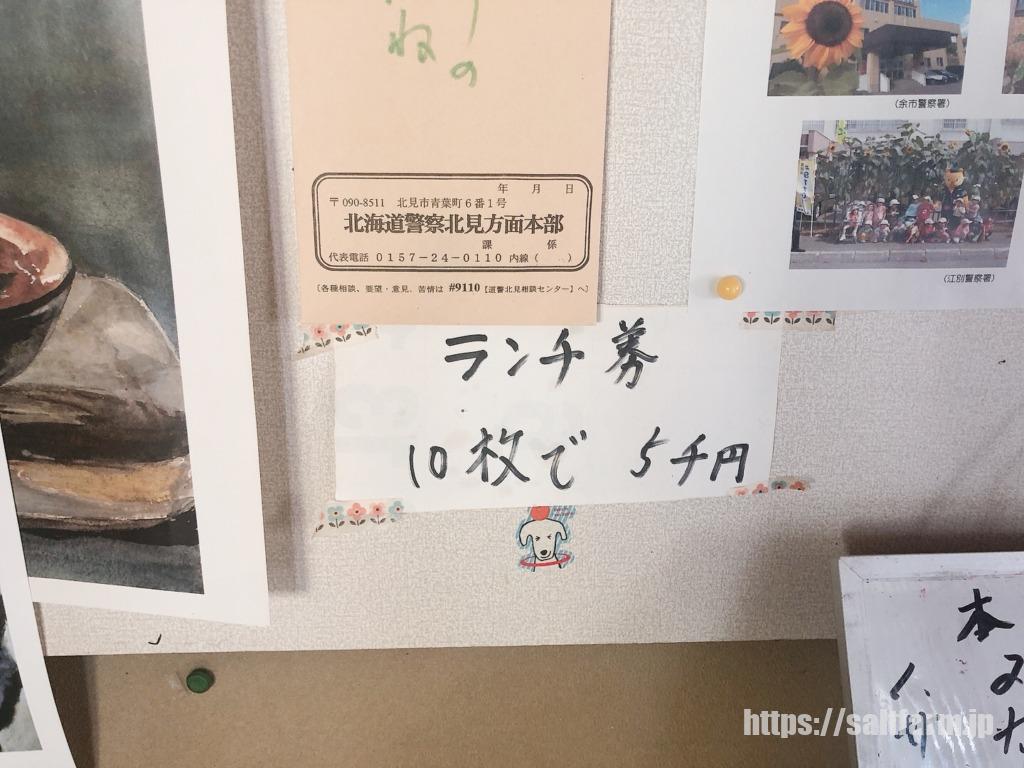 ねの
年 月 日
〒090-8511 北見市青葉町6番1号
北海道警察北見方面本部
課 係
代表電話 0157-24-0110 内線( )
〔各種相談、要望・意見、苦情は #9110【道警北見相談センター】へ〕
(余市警察署)
(江別警察署)
ランチ券
10枚で 5千円
本
https://saltfarm.jp